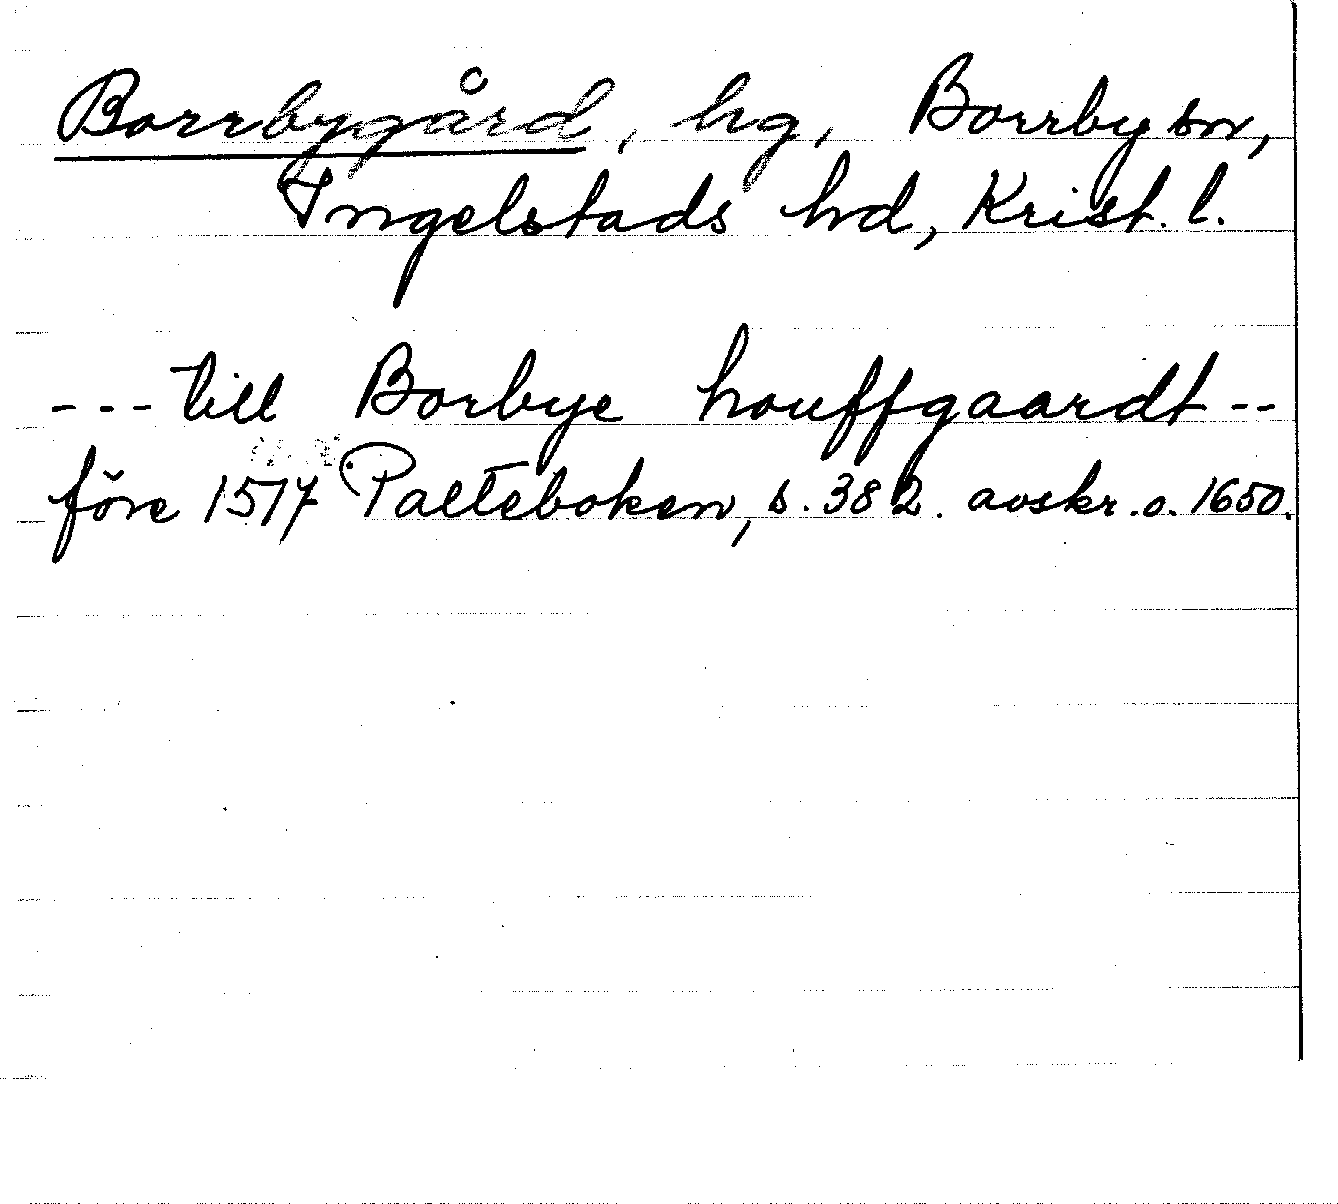 Borrbygård, hg, Borrby sn,
Ingelstads hd, Krist. l.
--- till Borbye houffgaardt --
före 1517 Palteboken, s. 382. avskr. o. 1650.